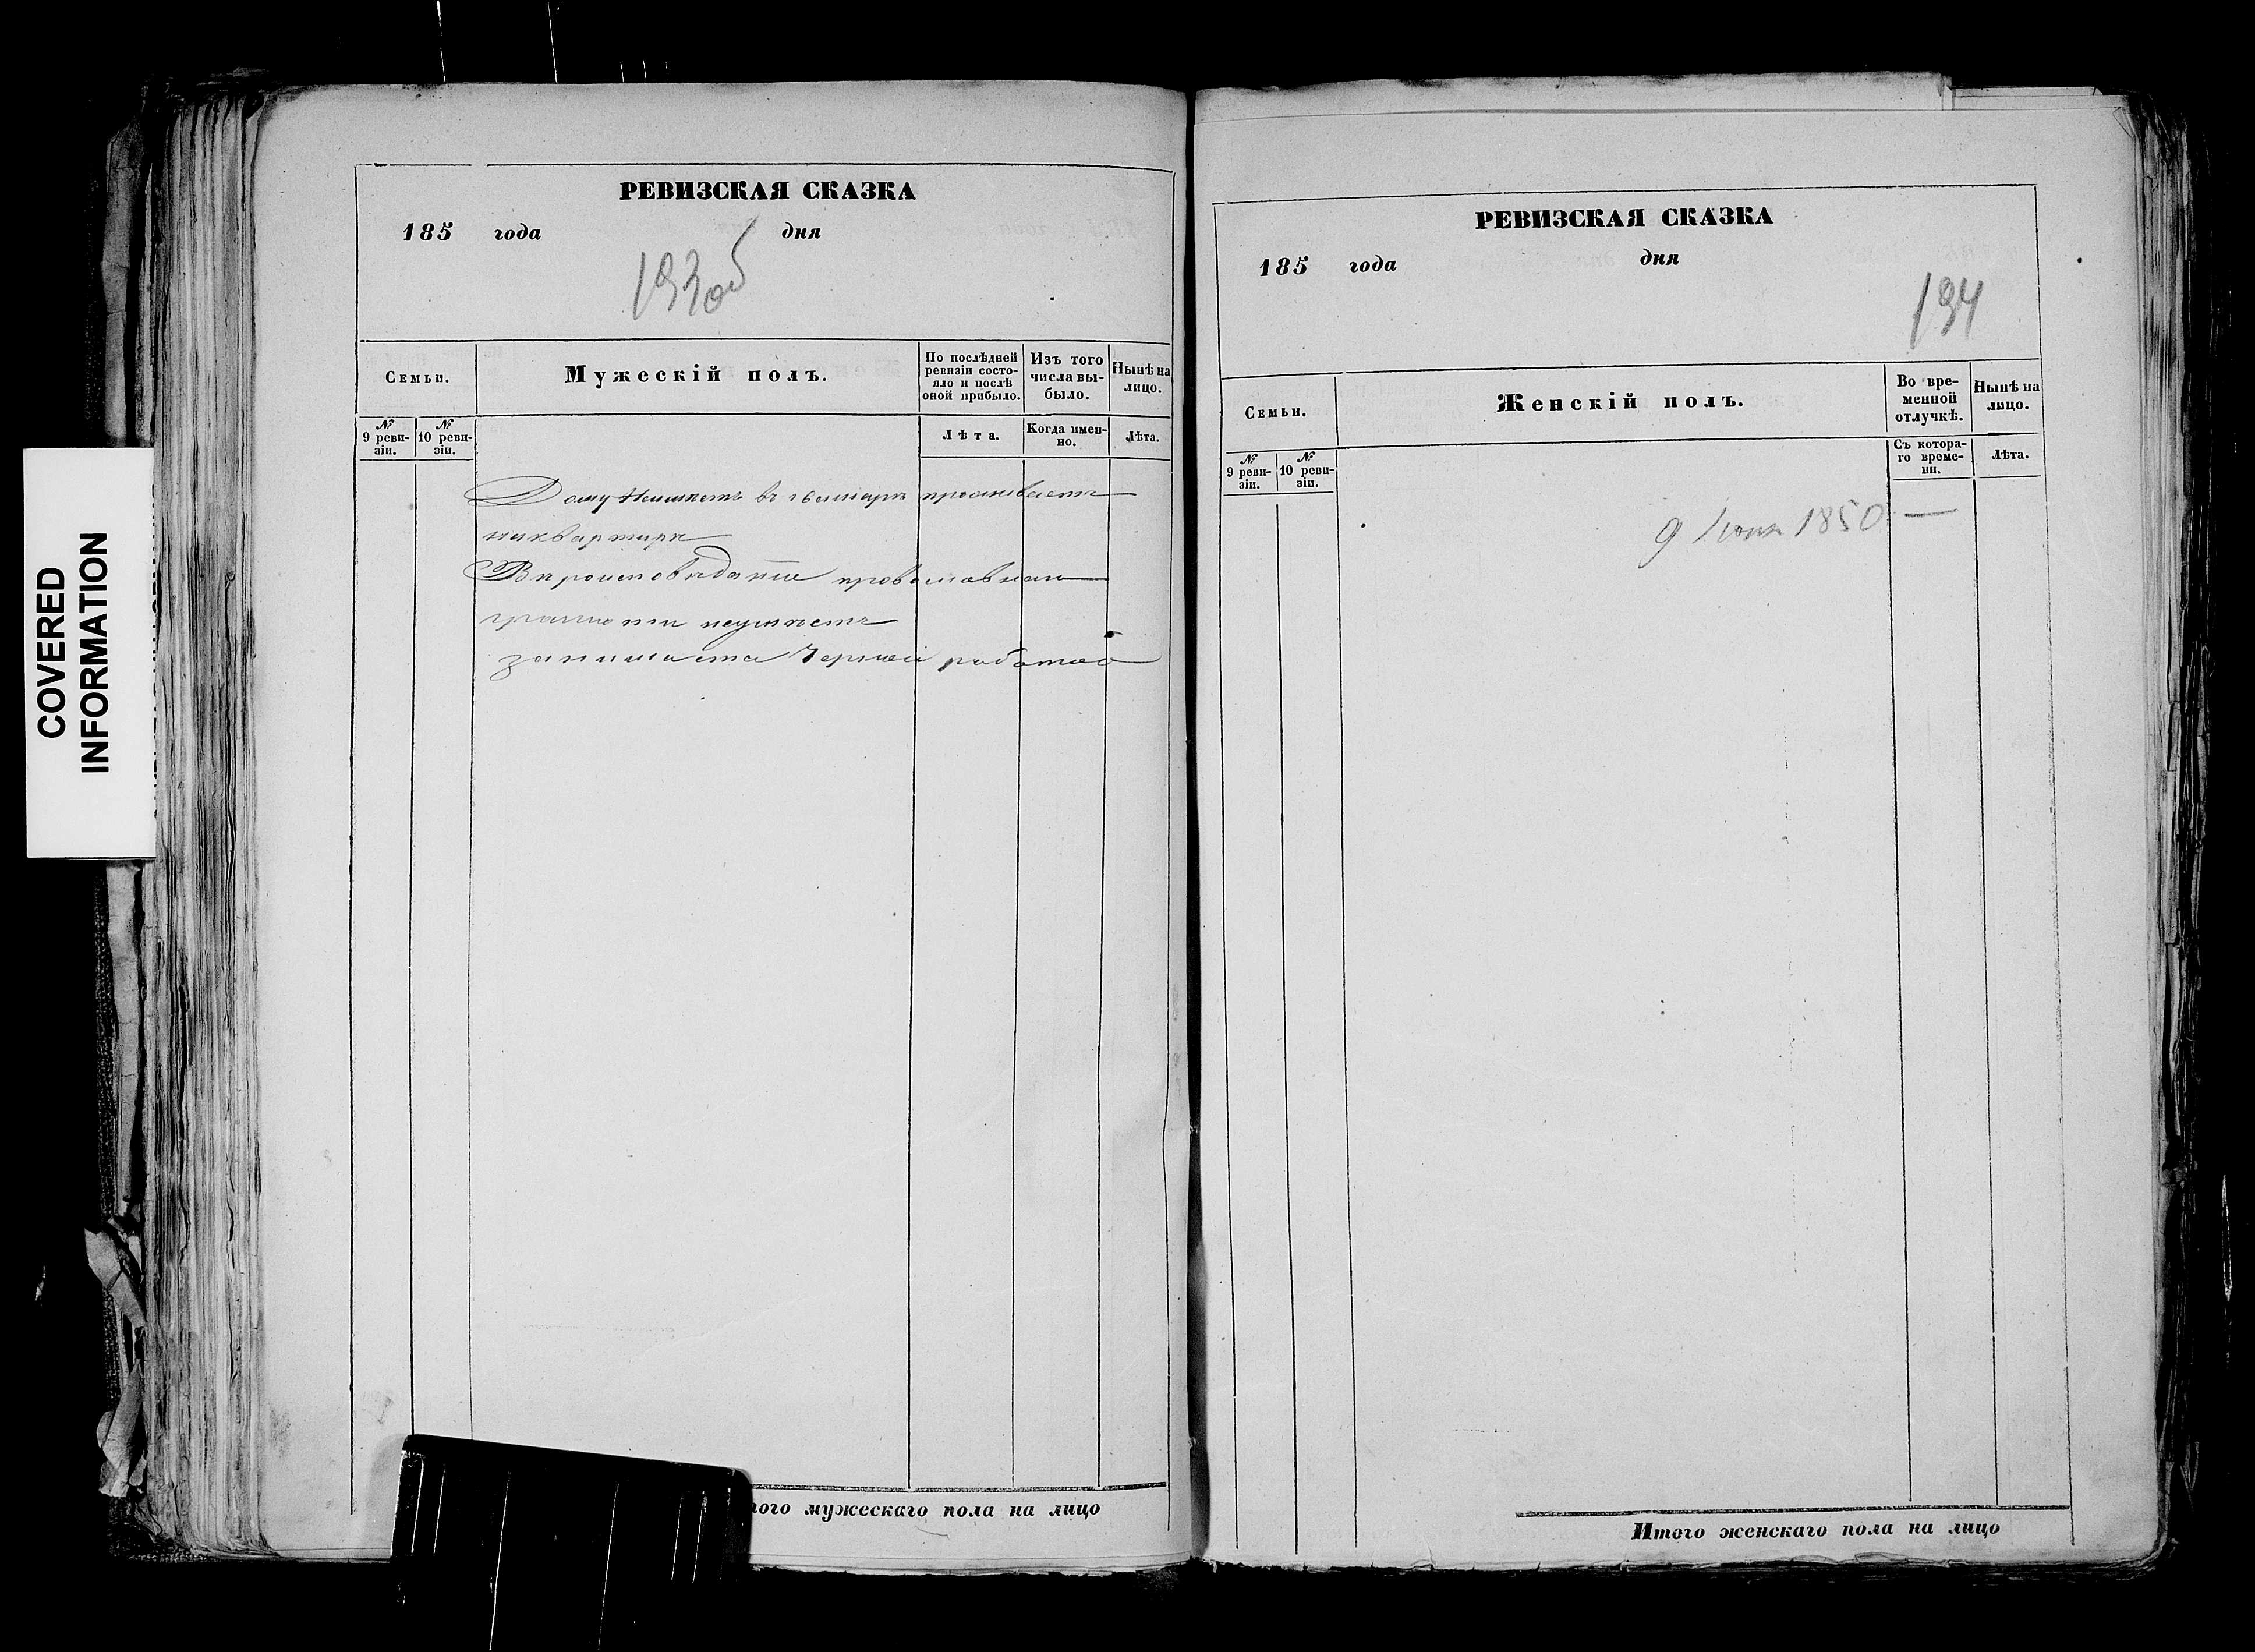 COVERED
INFORMATION
РЕВИЗСКАЯ СКАЗКА
185 года дня
193 об
Семьи.
Мужескій полъ.
По послѣдней
ревизіи состо-
яло и послѣ
оной прибыло.
Изъ того
числа вы-
было.
Нынѣ на
лицо.
№
9 реви-
зіи.
№
10 реви-
зіи.
Лѣта.
Когда имен-
но.
Лѣта.
Дому Неимѣетъ въ проживаетъ
наквартирѣ
Вѣроисповѣданіе православнаго
грамоти неумѣетъ
занимается Черной работой
того мужескаго пола на лицо
РЕВИЗСКАЯ СКАЗКА
185 года дня
194
Семьи.
Женскій полъ.
Во вре-
менной
отлучкѣ.
Нынѣ на
лицо.
№
9 реви-
зіи.
№
10 реви-
зіи.
Съ котора-
го време-
ни.
Лѣта.
9 Іюня 1850 —
Итого женскаго пола на лицо